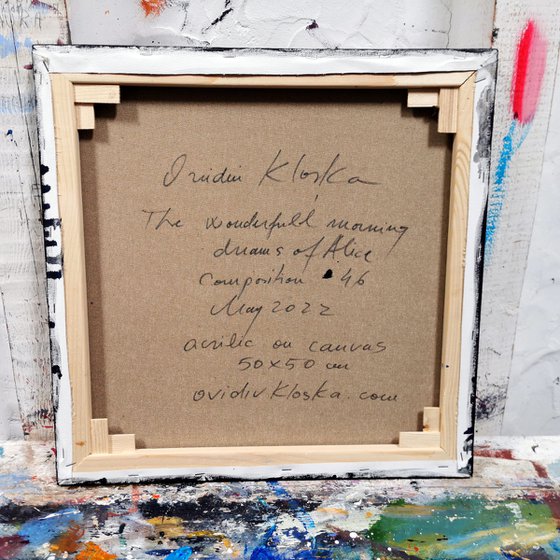 Ovidiu Kloska
The wonderfull morning
dreams of Alice
composition 46
May 2022
acrilic on canvas
50x50 cm
ovidiuKloska.com